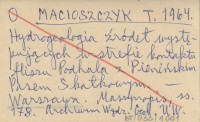 O MACIOSZCZYK T. 1964.
Hydrogeologia źródeł wystę-
pujących w strefie kontaktu
fliszu Podhala z Pienińskim
Pasem Skałkowym. —
Warszawa. Maszynopis, ss.
178. Archiwum Wydz. Geol. U.W.